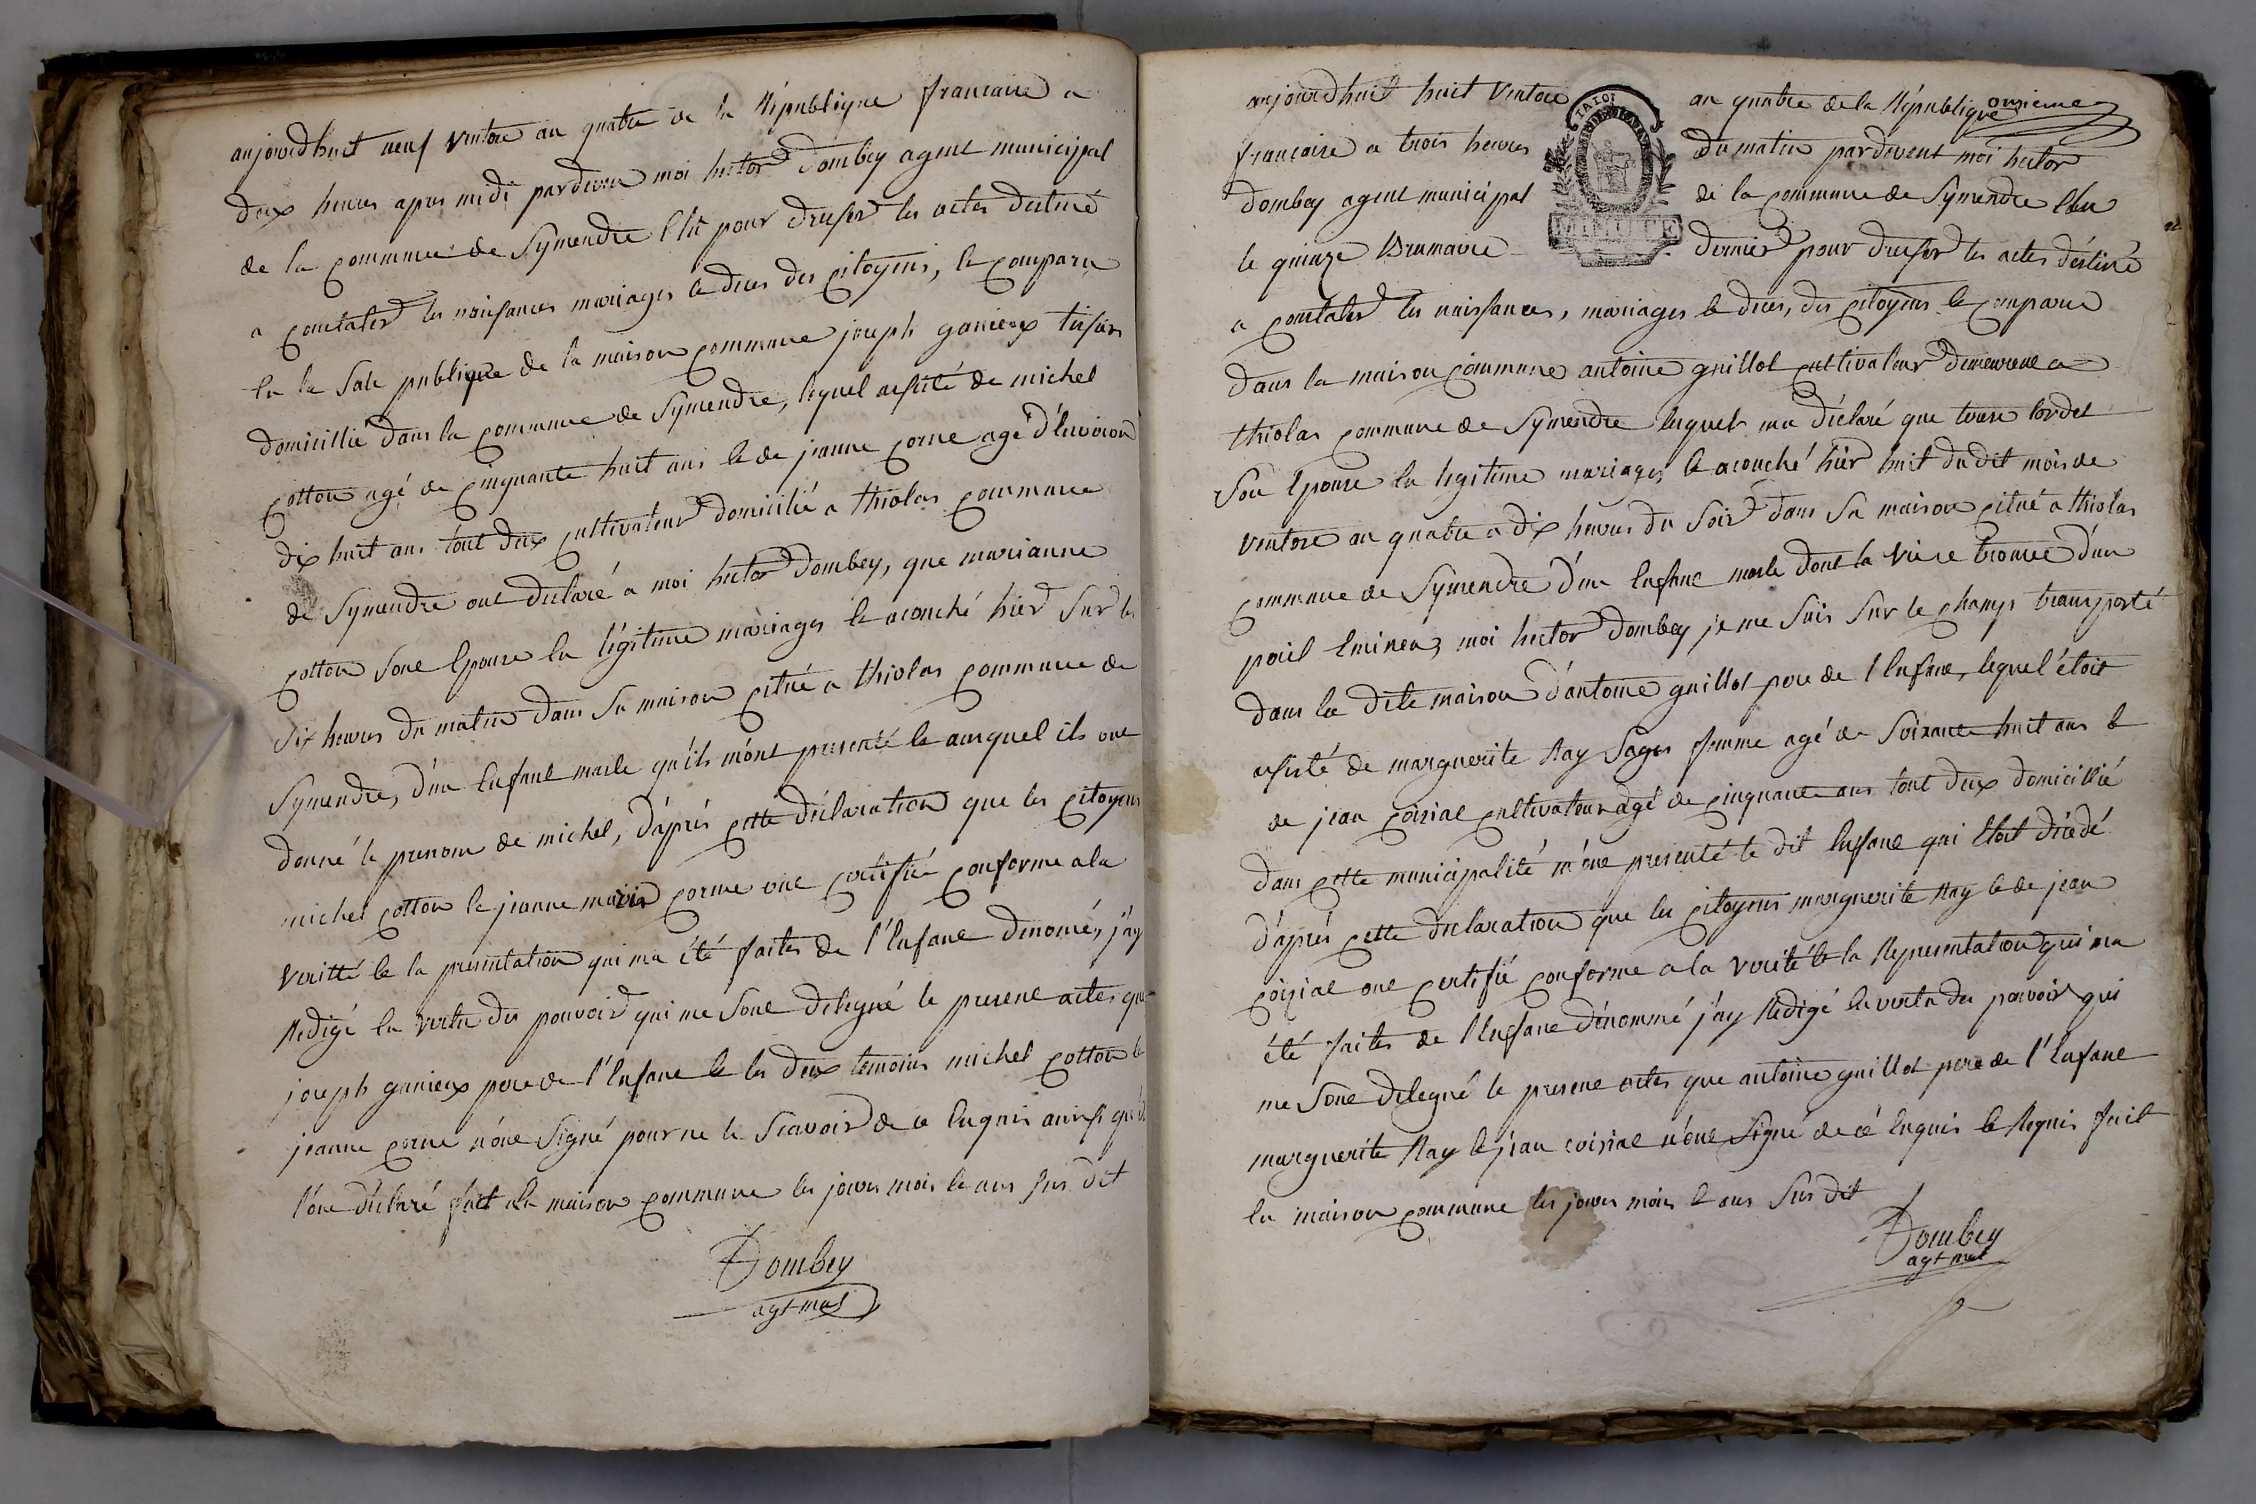 aujourdhuit neuf ventose an quatre de la République francaise a
deux heures apres midi pardevan moi hector Dombey agent municipal
de la commune de Symendre Elu pour dresser les actes destiné
a constater les naissances mariages et deces des citoyens, est comparu
en la Sale publique de la maison commune joseph ganieux tissier
domicillié dans la commune de Symendre, lequel assisté de michel
cotton agé de cinquante huit ans et de jeanne corne agé d'Environ
dix huit ans tout deux cultivateur domicilié a thiolas commune
de Symendre ont declaré a moi hector Dombey, que marianne
cotton Sont Epouse en légitime mariages est acouché hier Sur les
Six heures du matin dans Sa maison citué a thiolas commune de
Symendre, d'un Enfant masle qu'ils m'ont presenté et auxquel ils ont
donné le prenom de michel, d'aprés cette déclaration que les citoyens
michel cotton et jeanne corne ont certifié conforme a la
veritté et la presentation qui ma été faites de l'Enfant dénomé, j'ay
Redigé En vertu des pouvoir qui me Sont delegué le present actes que
joseph ganieux pere de l'Enfant et les deux temoins michel cotton et
jeanne corne n'ont Signé pour ne le Scavoir de ce Enquis ainssi qu'ils
l'ont déclaré fait En maison commune les jours mois et ans Sus dit
Dombey
agt mal
aujourdhuit huit Ventose an quatre de la République onzieme
francaise a trois heures Du matin pardevent moi hector
Dombey agent municipal de la commune de Symendre Elu
le quinze Brumaire dernier pour dresser les actes déstiné
a constater les naissances, mariages et deces, des citoyens est comparu
dans la maison commune antoine guillot cultivateur demeurent a
thiolas commune de Symendre lequel ma déclaré que
Son Epouse En legitime mariages, est acouché hier huit du dit mois de
ventose an quatre a dix heures du Soir dans Sa maison citué a thiolas
commune de Symendre d'un Enfant masle dont la vie ce trouve d'un
peril Eminent, moi hector Dombey je me Suis Sur le champs transporté
dans la dite maison d'antoine guillot pere de l'Enfant, lequel étoit
assisté de marguerite Ray Sages femme agé de Soixante huit ans et
de jean cultivateur agé de cinquante ans tout deux domicillié
dans cette municipalité m'ont presenté le dit Enfant qui Etoit décédé
d'aprés cette declaration que les citoyens marguerite Ray et de jean
ont certifié conforme a la verité et la Representation qui ma
été faites de l'Enfant dénommé j'ay Redigé En vertu des pouvoir qui
me Sont delegué le present actes que antoine guillot pere de l'Enfant
marguerite Ray et jean n'ont Signé de cé Enquis et Requis fait
En maison commune les jours mois et ans Sus dit
Dombey
agt mal